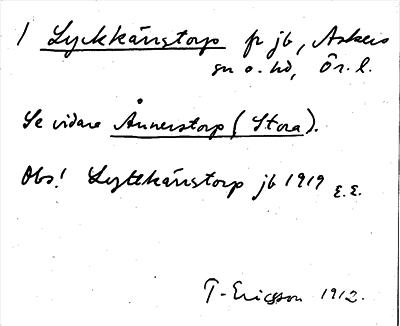 / Lyckkärstorp fr jb, Askers
sn o. hd, Ör. l.
Se vidare Ånnerstorp (Stora).
Obs! Lyttkärstorp jb 1919 E.E.
T-Ericsson 1912.